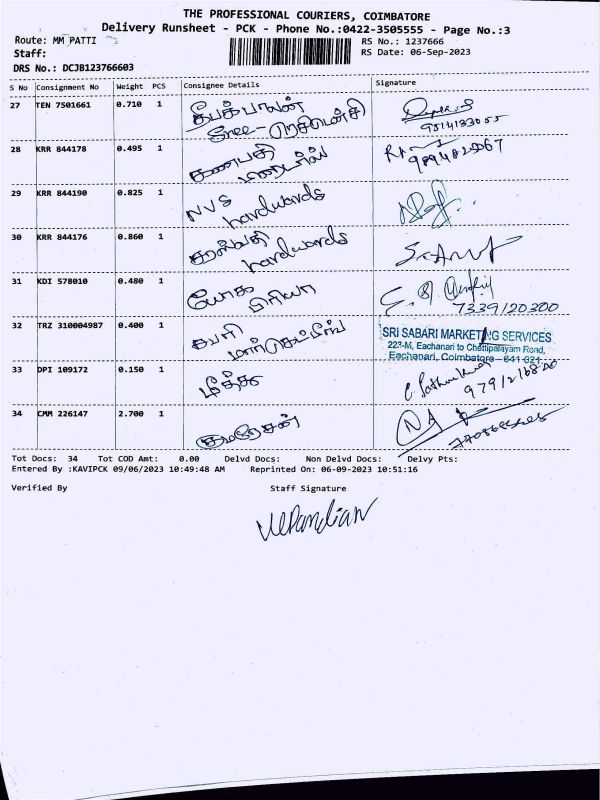 THE PROFESSIONAL COURIERS, COIMBATORE
Delivery Runsheet - PCK - Phone No.:0422-3505555 - Page No.:3
Route: MM PATTI
RS No.: 1237666
Staff:
RS Date: 06-Sep-2023
DRS No.: DCJB123766603
S No Consignment No Weight PCS Consignee Details Signature
27 TEN 7501661 0.710 1 தீபக்பாலன்
Sree - ரெசிடென்சி
28 KRR 844178 0.495 1 கணபதி
29 KRR 844190 0.825 1 NVS
hardwards
30 KRR 844176 0.860 1 சரஸ்வதி
hardwards
31 KDI 578010 0.480 1 யோக
பிரியா
7339120300
32 TRZ 310004987 0.400 1 சபரி
மார்கெட்டிங்
SRI SABARI MARKETING SERVICES
223-M, Eachanari to Chettipalayam Road,
Eachanari, Coimbatore - 641 021
33 DPI 109172 0.150 1
34 CMM 226147 2.700 1 குமரேசன்
Tot Docs: 34 Tot COD Amt: 0.00 Delvd Docs: Non Delvd Docs: Delvy Pts:
Entered By :KAVIPCK 09/06/2023 10:49:48 AM Reprinted On: 06-09-2023 10:51:16
Verified By Staff Signature